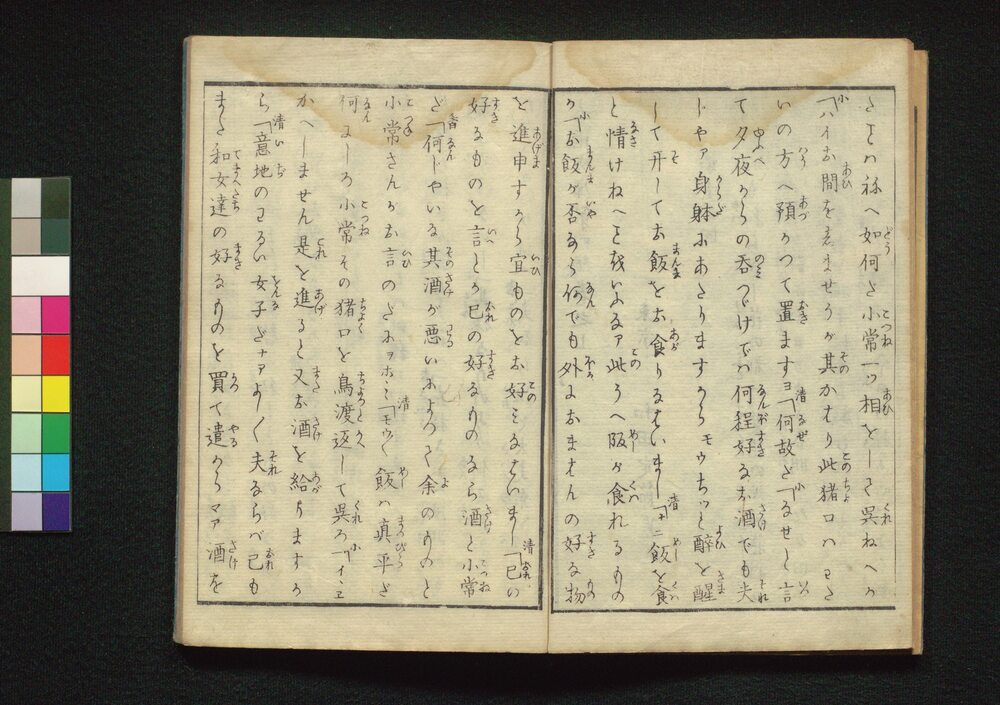 さまハ秘へ如何さ小常一ツ相をしさ呉ねへか
小「ハイお間をしませうが其かはり此猪口ハわた
いの方へ預かつて置ますヨ清「何故だ小「なぜと言
て夕夜からの呑つゞけでハ何程好なお酒でも夫
じやア身躰にあたりますからモウちつと醉を醒
して开してお飯をお食りなはいまし清「ナニ飯を食
と情けねへことをいふなア此うへ飯が食れるもの
か小「お飯が否なら何でも外におまはんの好な物
を進申すから宜ものをお好みなはいまし清「己の
好なものと言とか己の好なものなら酒と小常
だ番「何じやいな其酒が悪いによつて余のものと
小常さんがお言のだにヲホヽヽ清「モウ〳〵飯ハ真平だ
何にしろ小常その猪口を鳥渡返して呉ろ小「イヽエ
かへしません是を進ると又お酒を給りますか
ら清「意地のわるい女子だナアよし〳〵夫ならバ己も
また和女達の好なものを買て遣からマア酒を